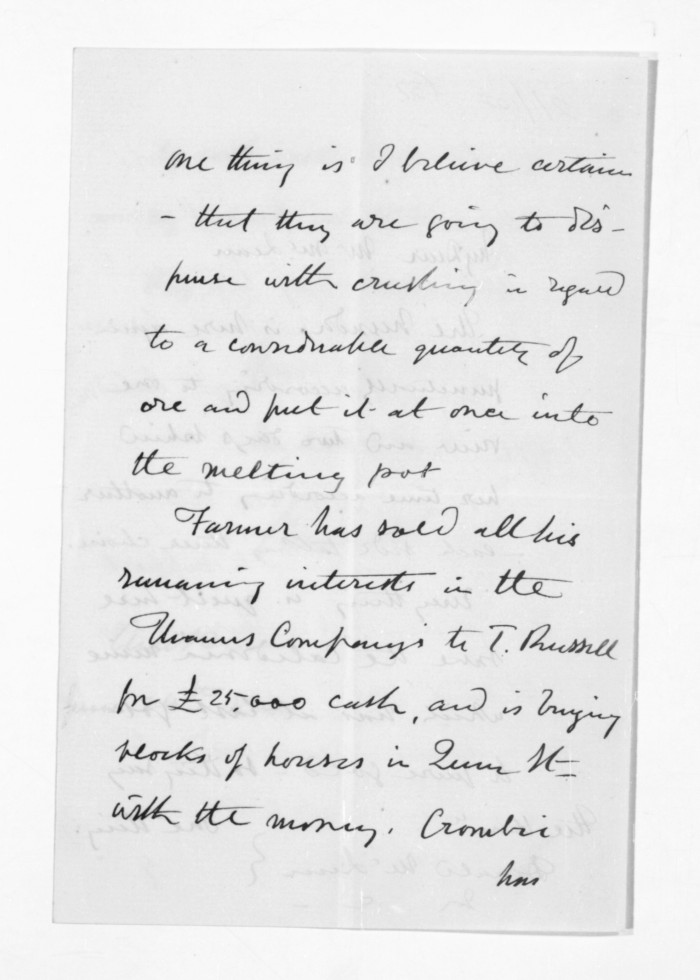 one thing is I believe certain
- that they are going to dis-
pense with crushing in regard
to a considerable quantity of
ore and put it at once into
the melting pot
Farmer has sold all his
remaining interests in the
Thames Company's to T. Russell
for £25,000 cash, and is buying
blocks of houses in Queen St
with the money. Crombie
has